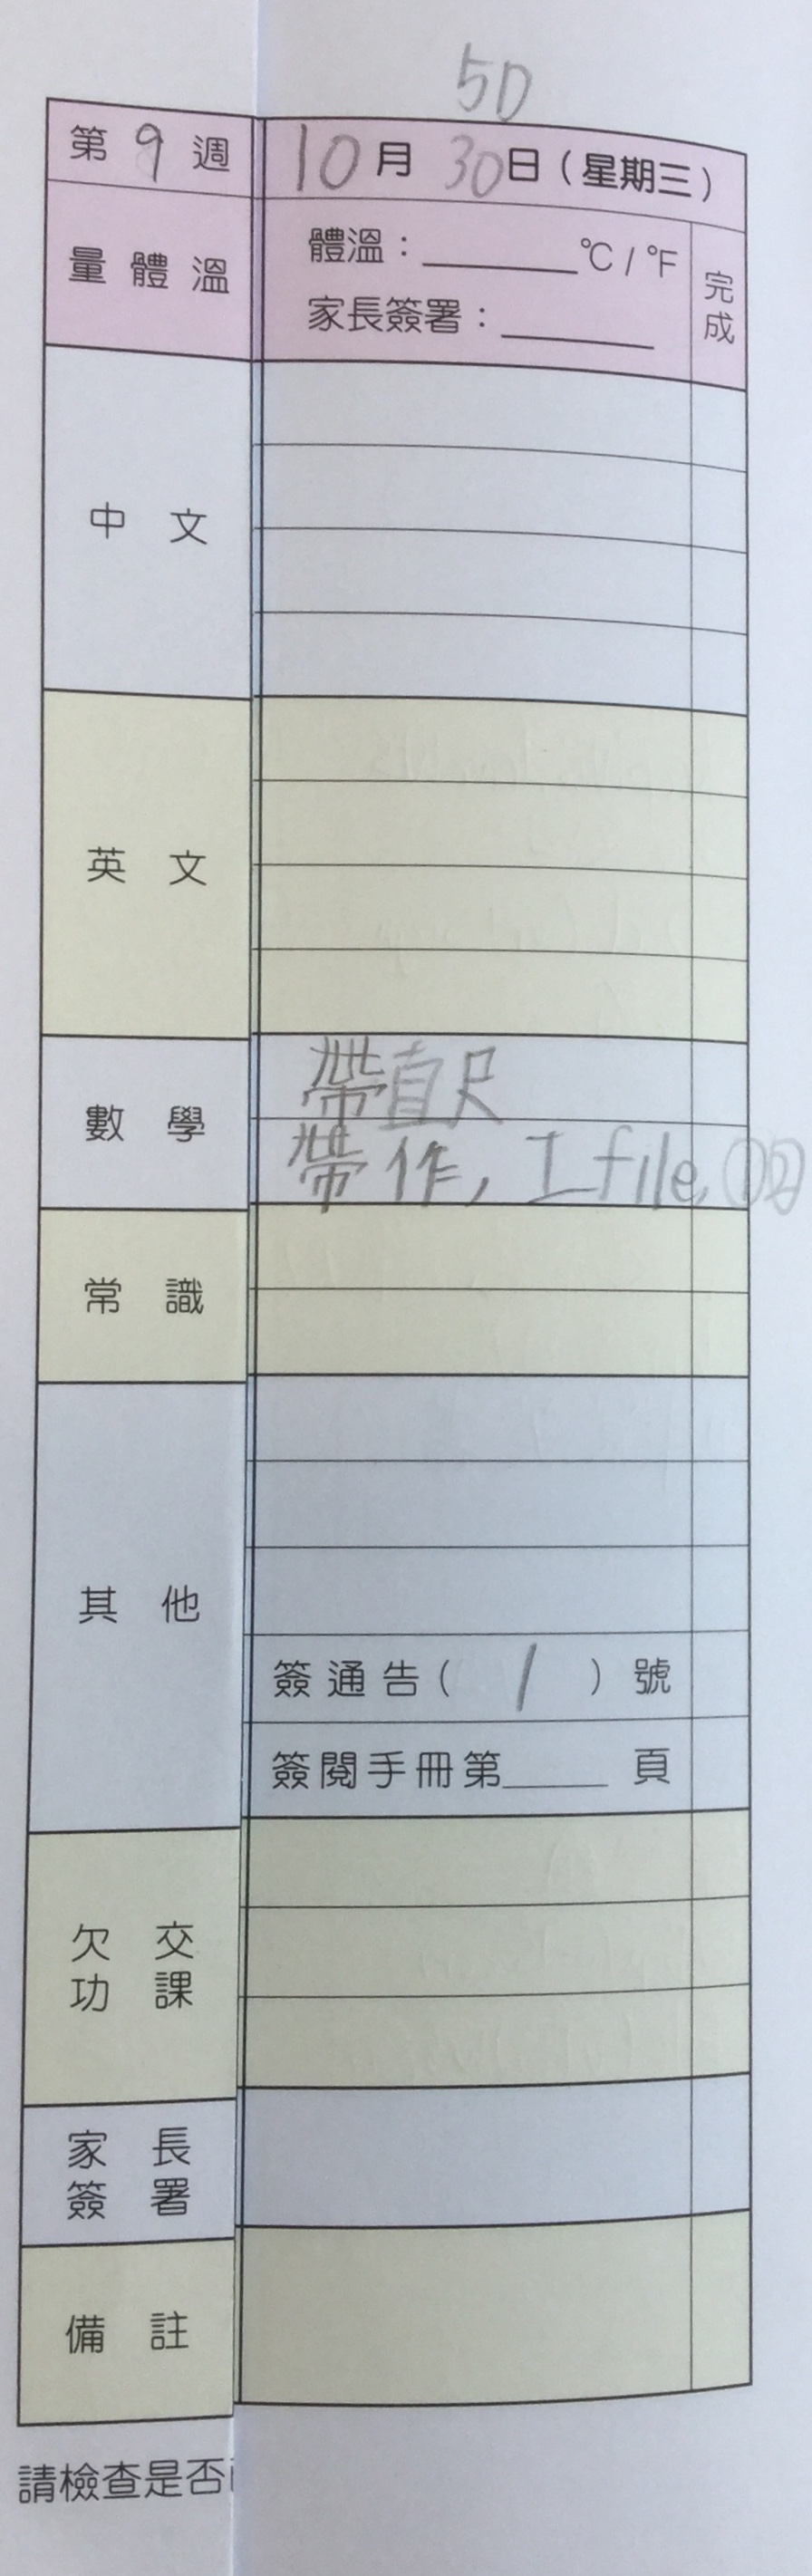 5D
第 9 週 10 月 30 日（星期三）
量體溫 體溫：______°C / °F 完成
家長簽署：______
中文
英文
數學 帶直尺
帶作, 工 file, ①②
常識
其他
簽通告（ 1 ）號
簽閱手冊第____頁
欠交功課
家長簽署
備註
請檢查是否